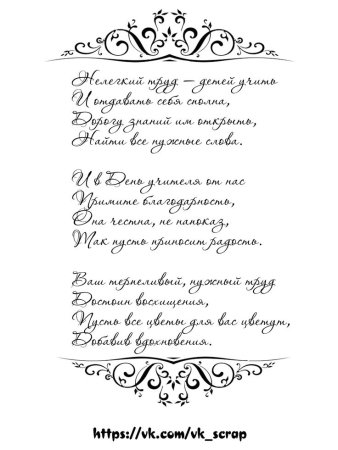 Нелегкий труд — детей учить
И отдавать себя сполна,
Дорогу знаний им открыть,
Найти все нужные слова.
И в День учителя от нас
Примите благодарность,
Она честна, не напоказ,
Так пусть приносит радость.
Ваш терпеливый, нужный труд
Достоин восхищения,
Пусть все цветы для вас цветут,
Добавив вдохновения.
https://vk.com/vk_scrap